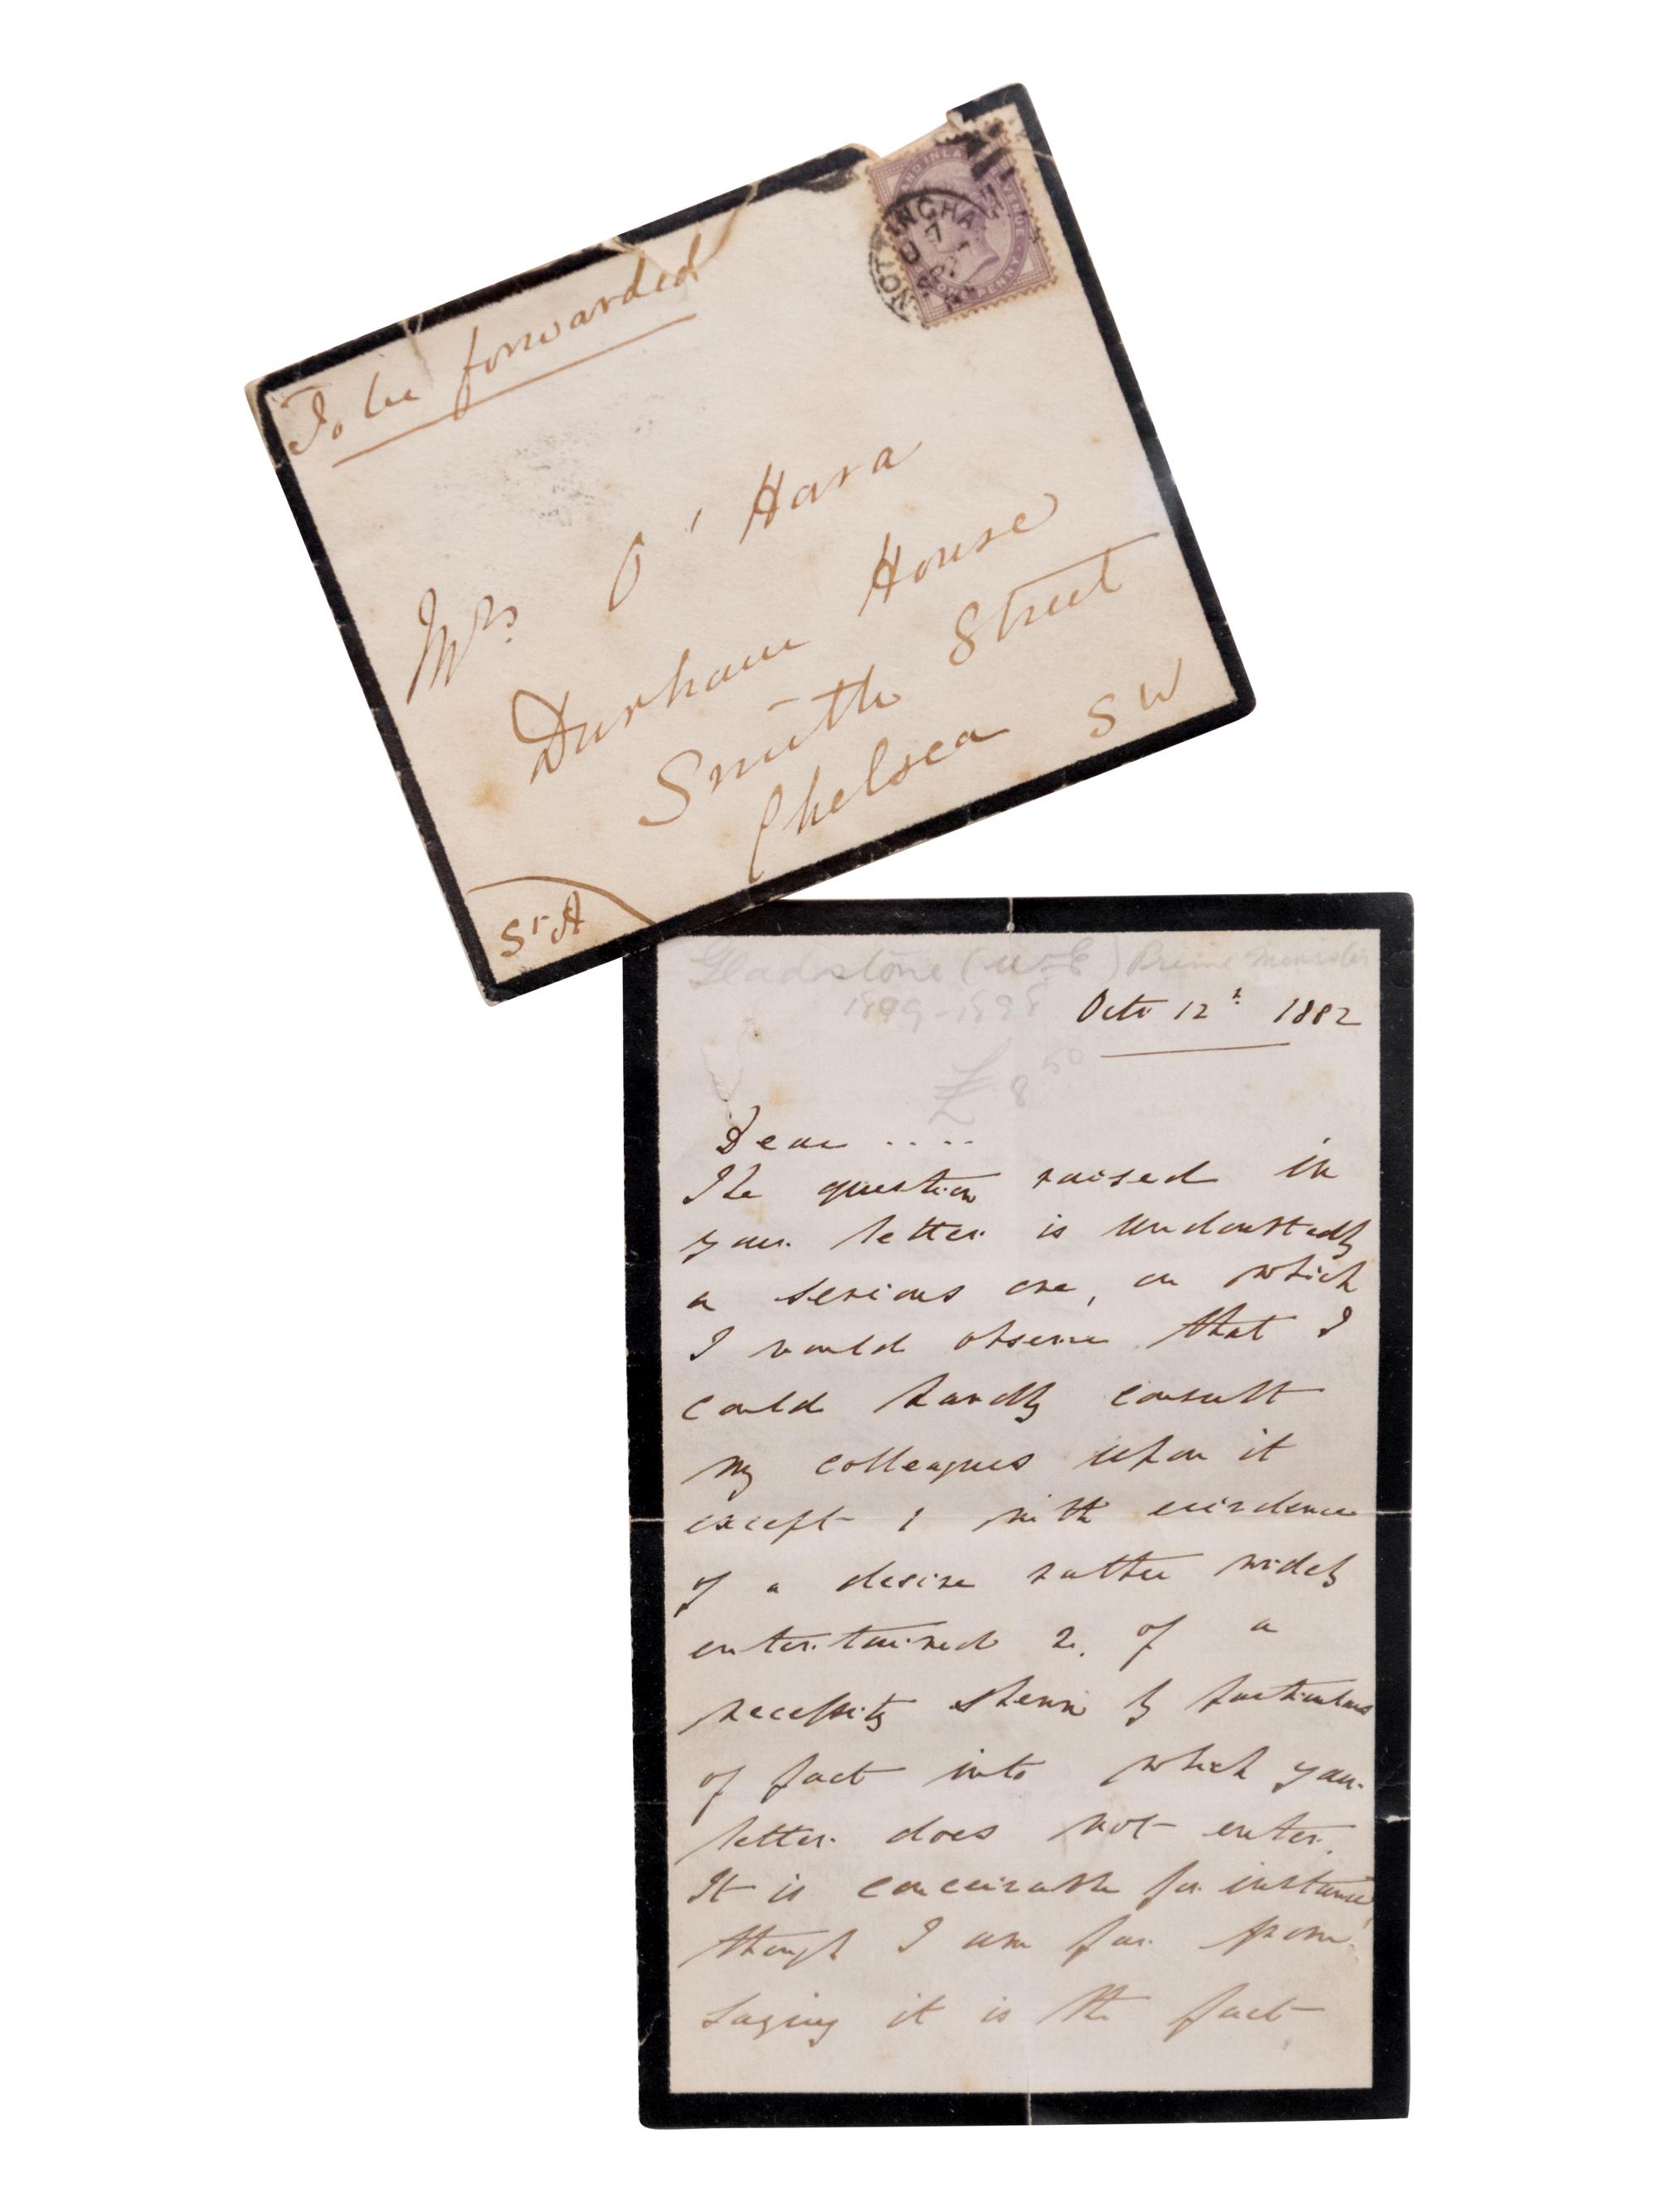 To be forwarded
NOTTINGHA
Mrs. O'Hara
Durham House
Smith Street
Chelsea SW
St A
Gladstone (Wm E) Prime Minister
£8 50
Octr 12th 1882
Dear ....
The question raised in
your letter is undoubtedly
a serious one, on which
I would observe that I
could hardly consult
my colleagues upon it
except 1 with evidence
of a desire rather widely
entertained 2. of a
necessity shewn by particulars
of fact into which your
letter does not enter.
It is conceivable for instance,
though I am far from
saying it is the fact